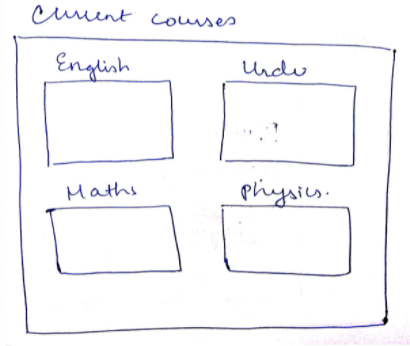 Current courses
English
Urdu
Maths
Physics.